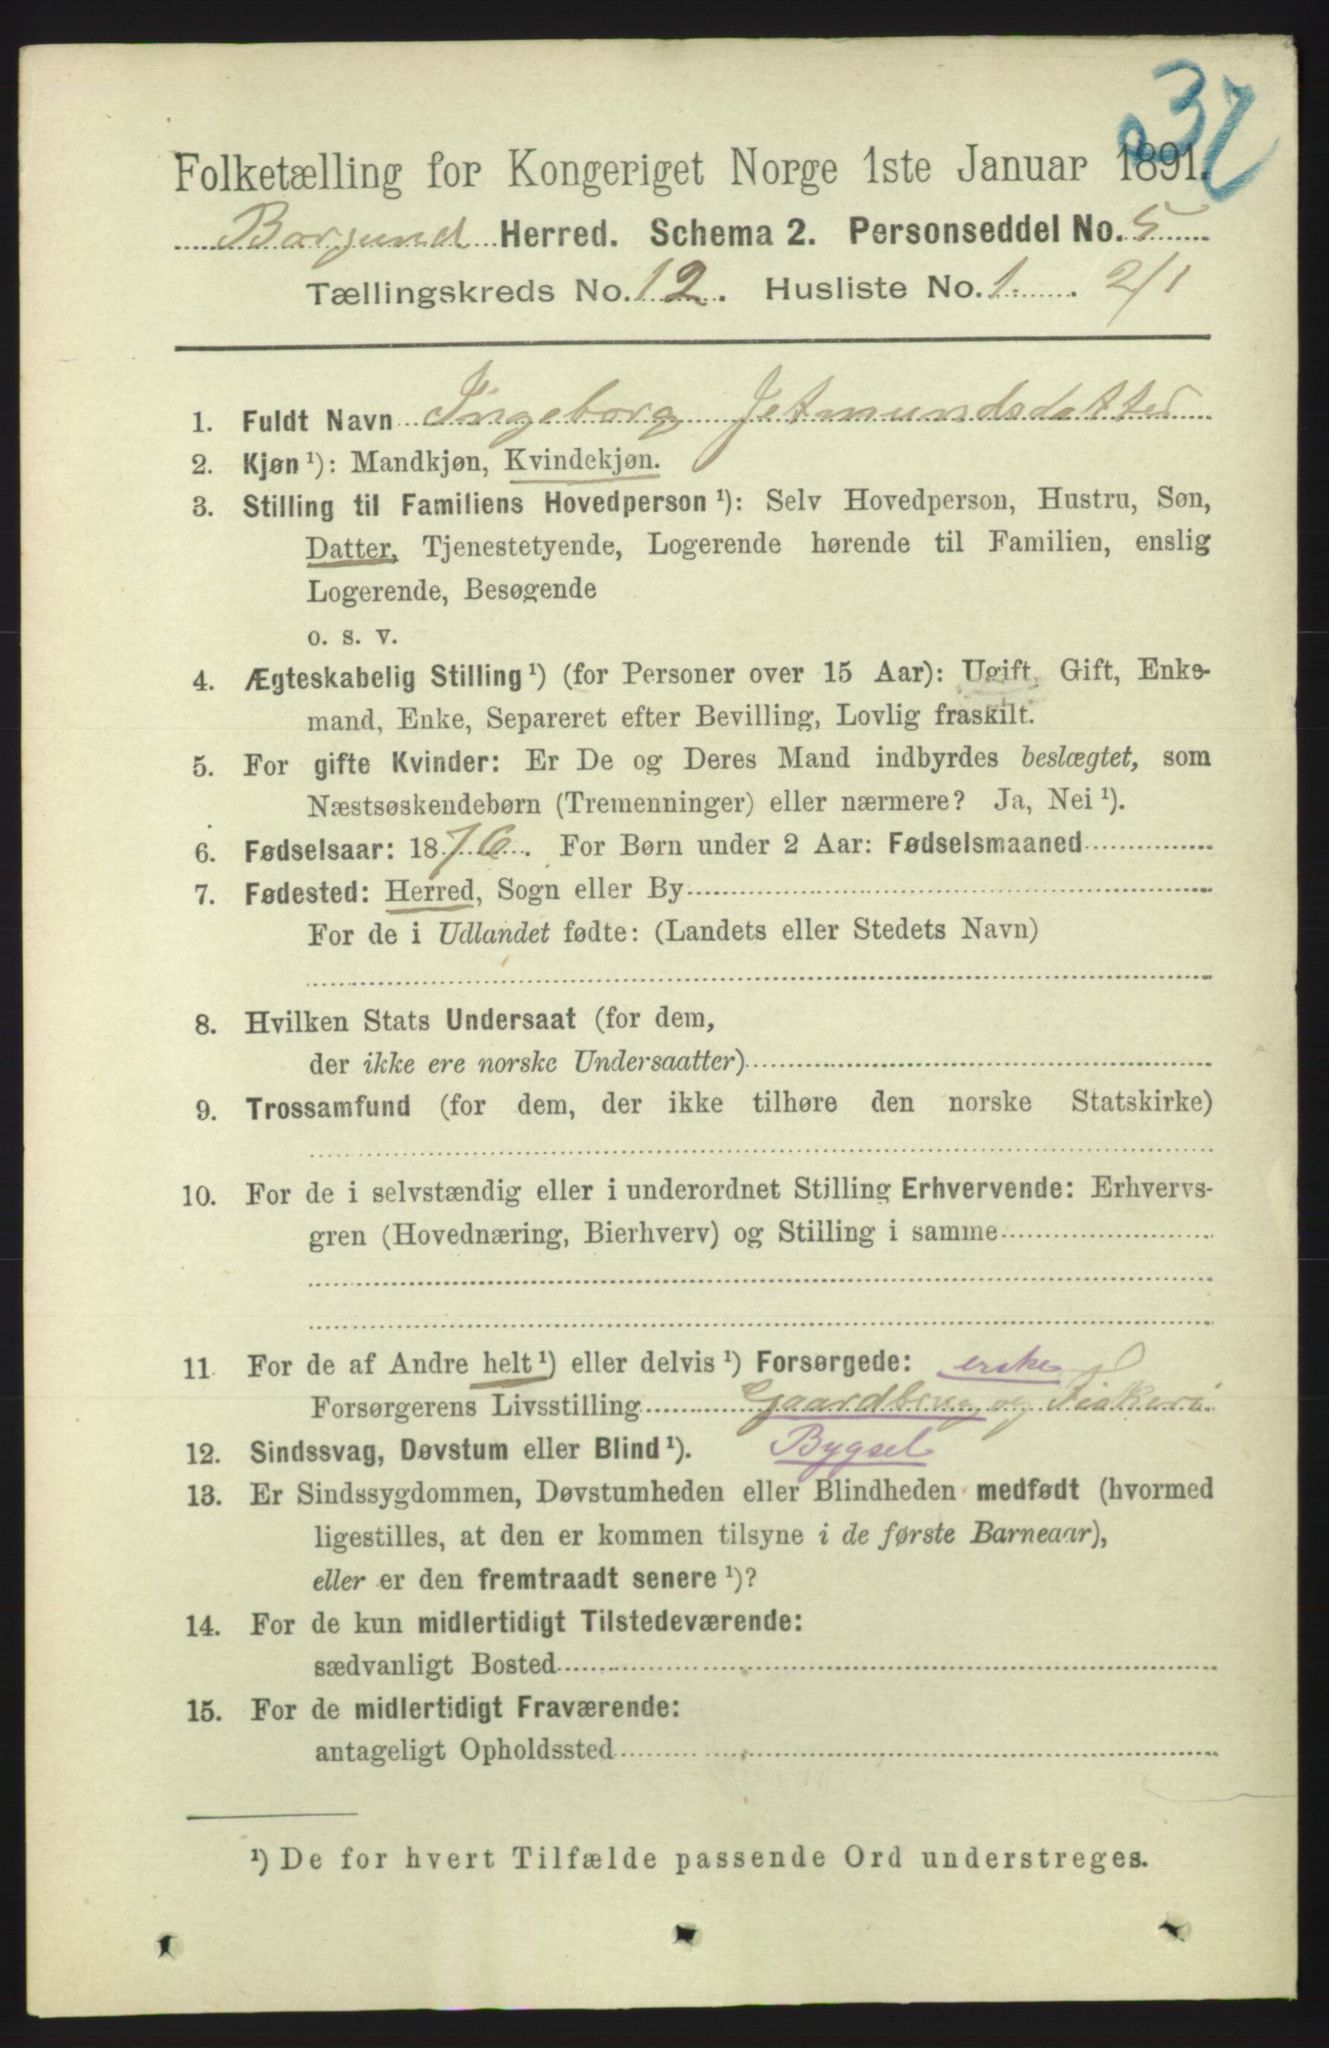 37
Folketælling for Kongeriget Norge 1ste Januar 1891.
Borgund Herred. Schema 2. Personseddel No. 5
Tællingskreds No. 12. Husliste No. 1. 2/1
1. Fuldt Navn Ingeborg Jetmundsdatter
2. Kjøn ¹): Mandkjøn, Kvindekjøn.
3. Stilling til Familiens Hovedperson ¹): Selv Hovedperson, Hustru, Søn,
Datter, Tjenestetyende, Logerende hørende til Familien, enslig
Logerende, Besøgende
o. s. v.
4. Ægteskabelig Stilling ¹) (for Personer over 15 Aar): Ugift, Gift, Enke-
mand, Enke, Separeret efter Bevilling, Lovlig fraskilt.
5. For gifte Kvinder: Er De og Deres Mand indbyrdes beslægtet, som
Næstsøskendebørn (Tremenninger) eller nærmere? Ja, Nei ¹).
6. Fødselsaar: 1876. For Børn under 2 Aar: Fødselsmaaned
7. Fødested: Herred, Sogn eller By
For de i Udlandet fødte: (Landets eller Stedets Navn)
8. Hvilken Stats Undersaat (for dem,
der ikke ere norske Undersaatter)
9. Trossamfund (for dem, der ikke tilhøre den norske Statskirke)
10. For de i selvstændig eller i underordnet Stilling Erhvervende: Erhvervs-
gren (Hovednæring, Bierhverv) og Stilling i samme
11 For de af Andre helt ¹) eller delvis ¹) Forsørgede: erske
Forsørgerens Livsstilling Gaardbrug og Fiskeri
12. Sindssvag, Døvstum eller Blind ¹). Bygsel
13. Er Sindssygdommen, Døvstumheden eller Blindheden medfødt (hvormed
ligestilles, at den er kommen tilsyne i de første Barneaar),
eller er den fremtraadt senere ¹)?
14. For de kun midlertidigt Tilstedeværende:
sædvanligt Bosted
15. For de midlertidigt Fraværende:
antageligt Opholdssted
¹) De for hvert Tilfælde passende Ord understreges.